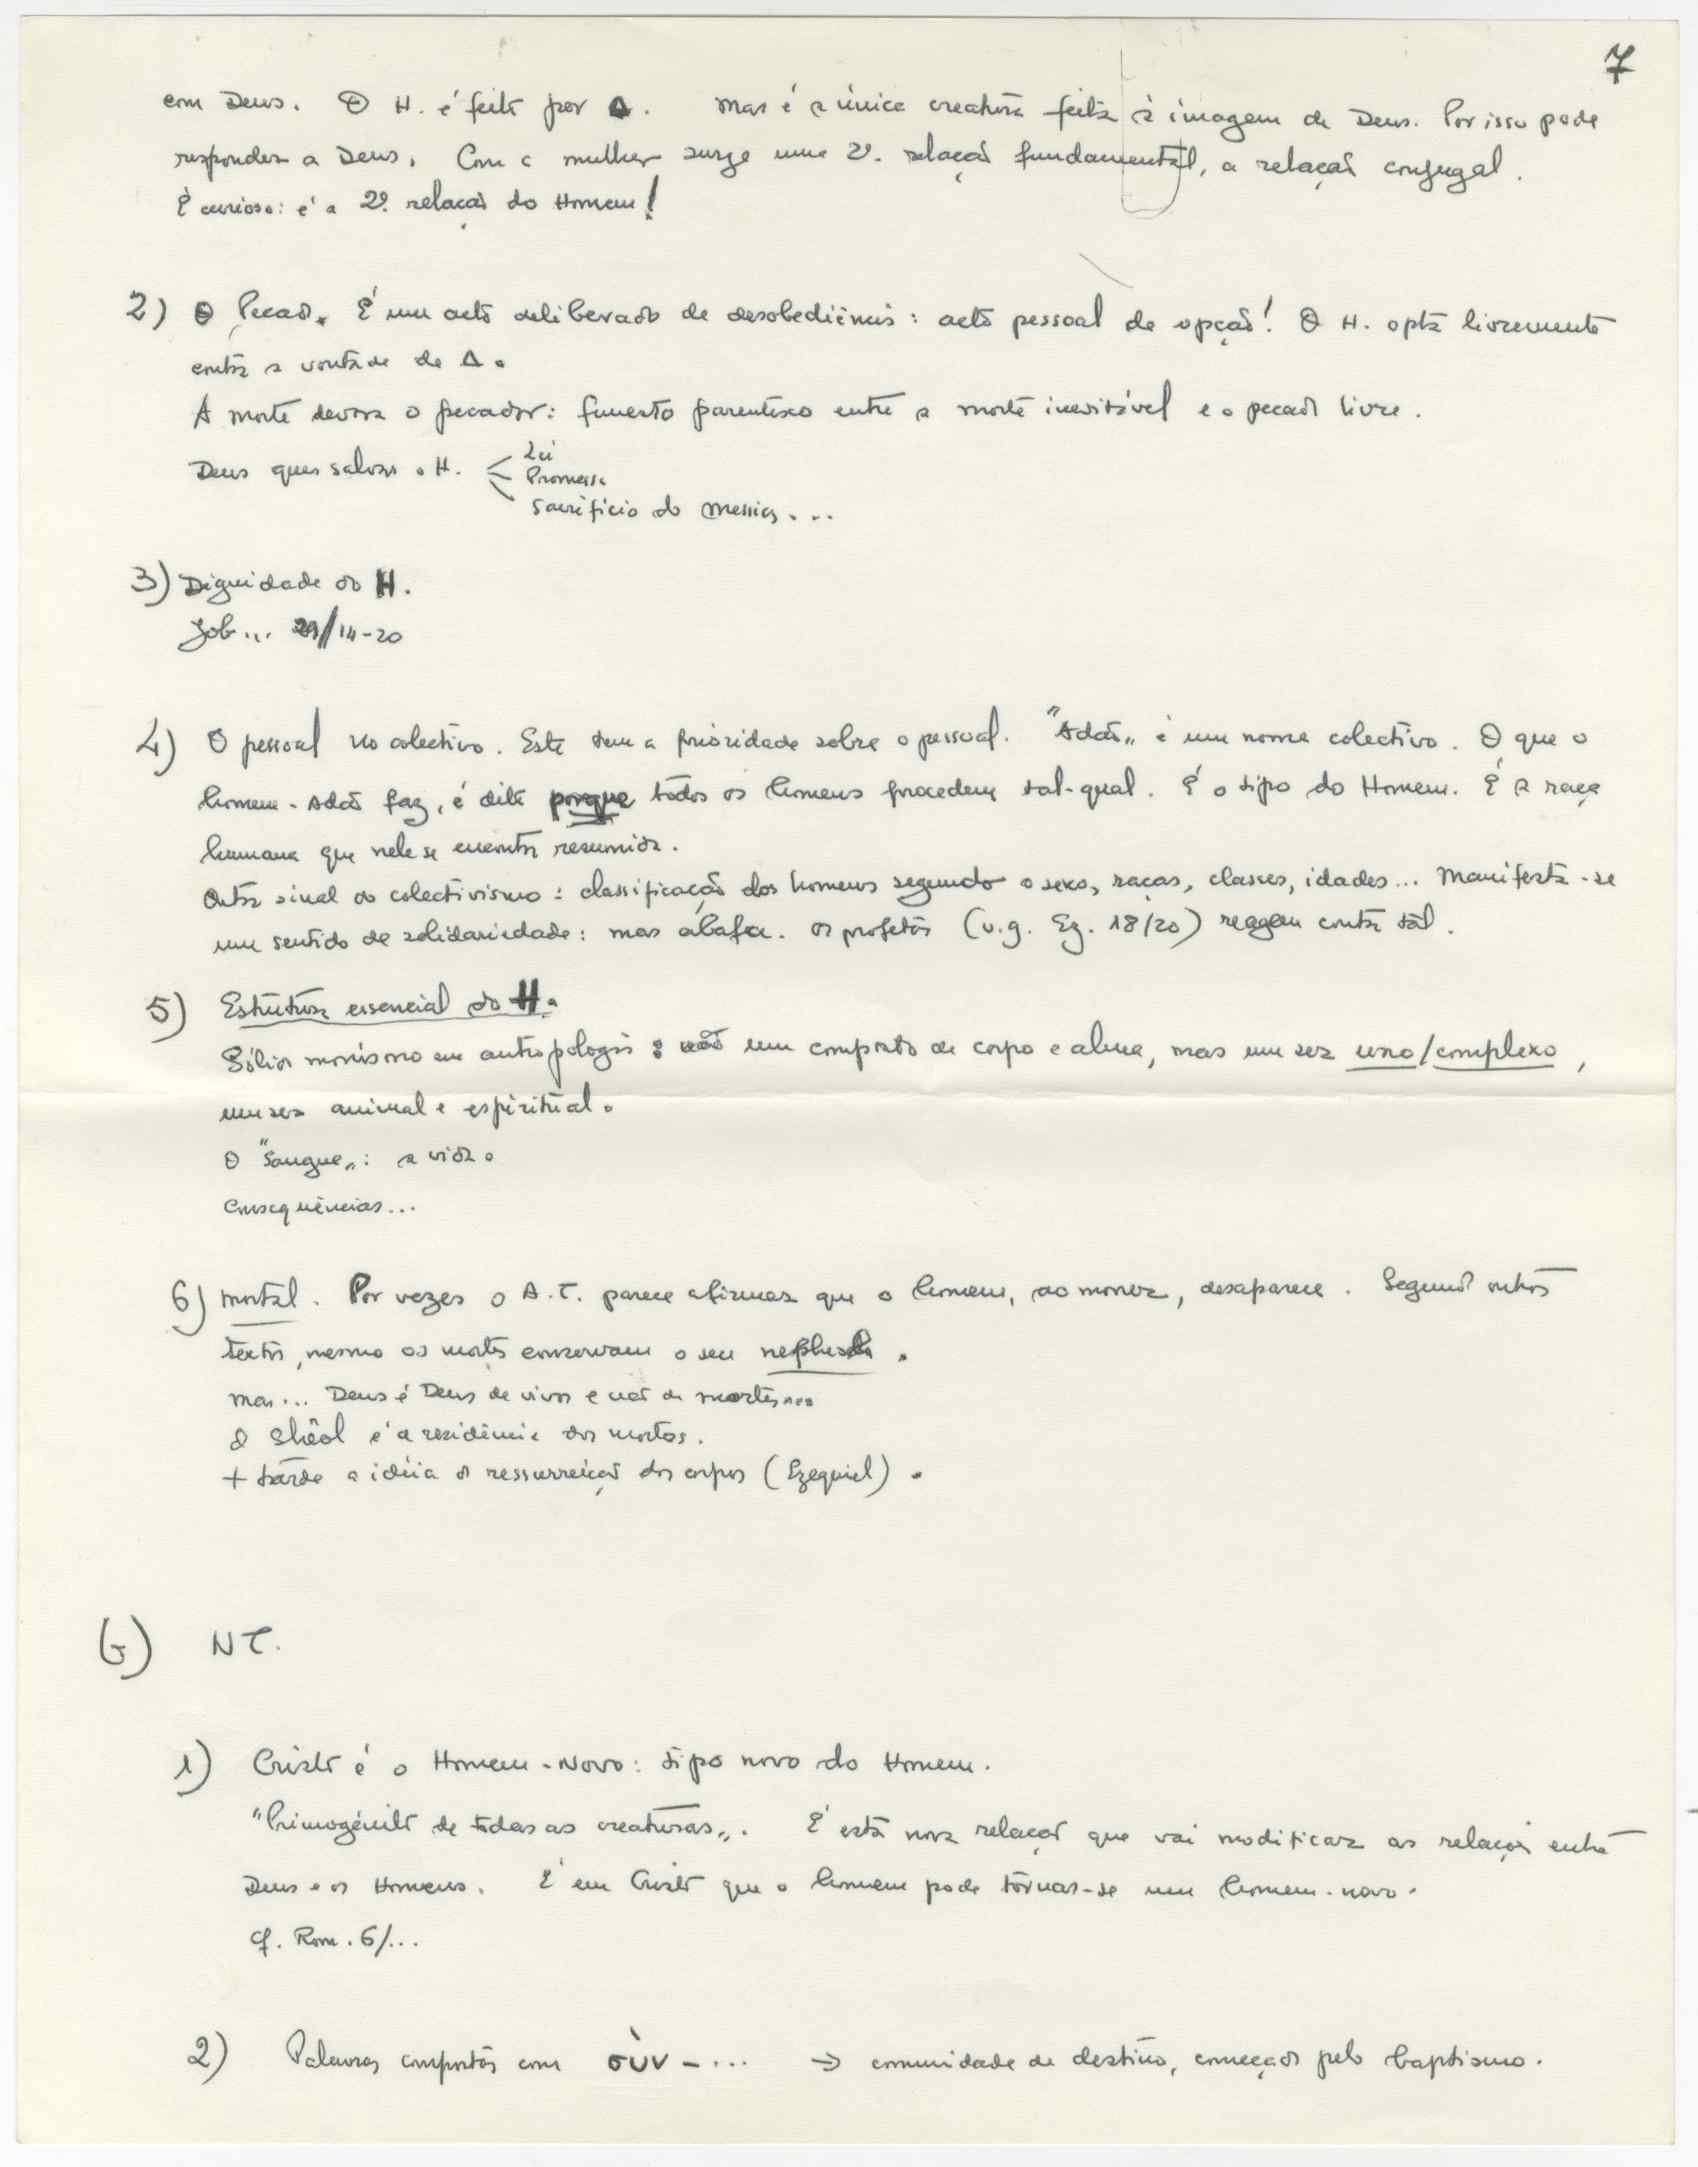 7
com Deus. O H. é feito por Δ. Mas é a única creatura feita à imagem de Deus. Por isso pode
responder a Deus. Com a mulher surge uma 2ª. relação fundamental, a relação conjugal.
É curioso: é a 2ª. relação do Homem!
2) O Pecado. É um acto deliberado de desobediência: acto pessoal de opção! O H. opta livremente
contra a vontade de Δ.
A morte devora o pecador: funesto parentesco entre a morte inevitável e o pecado livre.
Deus quer salvar o H. < Lei
Promessa
Sacrifício do Messias...
3) Dignidade do H.
Job... 29/14-20
4) O pessoal no colectivo. Este tem a prioridade sobre o pessoal. "Adão" é um nome colectivo. O que o
homem-Adão faz, é dito porque todos os homens procedem tal-qual. É o tipo do Homem. É a raça
humana que nele se encontra resumida.
Outro sinal do colectivismo: classificação dos homens segundo o sexo, raças, classes, idades... Manifesta-se
um sentido de solidariedade: mas abafa. Os profetas (v.g. Ez. 18/20) reagem contra tal.
5) Estrutura essencial do H.
Sólido monismo em antropologia: não um composto de corpo e alma, mas um ser uno/complexo,
um ser animal e espiritual.
O "Sangue": a vida.
Consequências...
6) mortal. Por vezes o A.T. parece afirmar que o homem, ao morrer, desaparece. Segundo outros
textos, mesmo os mortos conservam o seu nephesh.
mas... Deus é Deus de vivos e não de mortos...
O Shêol é a residência dos mortos.
+ tarde a idéia da ressurreição dos corpos (Ezequiel).
G) NT.
1) Cristo é o Homem-Novo: tipo novo do Homem.
"Primogénito de todas as creaturas". É esta nova relação que vai modificar as relações entre
Deus e os Homens. É em Cristo que o homem pode tornar-se um homem-novo.
Cf. Rom. 6/...
2) Palavras compostas com σὺν-... → comunidade de destino, começada pelo baptismo.